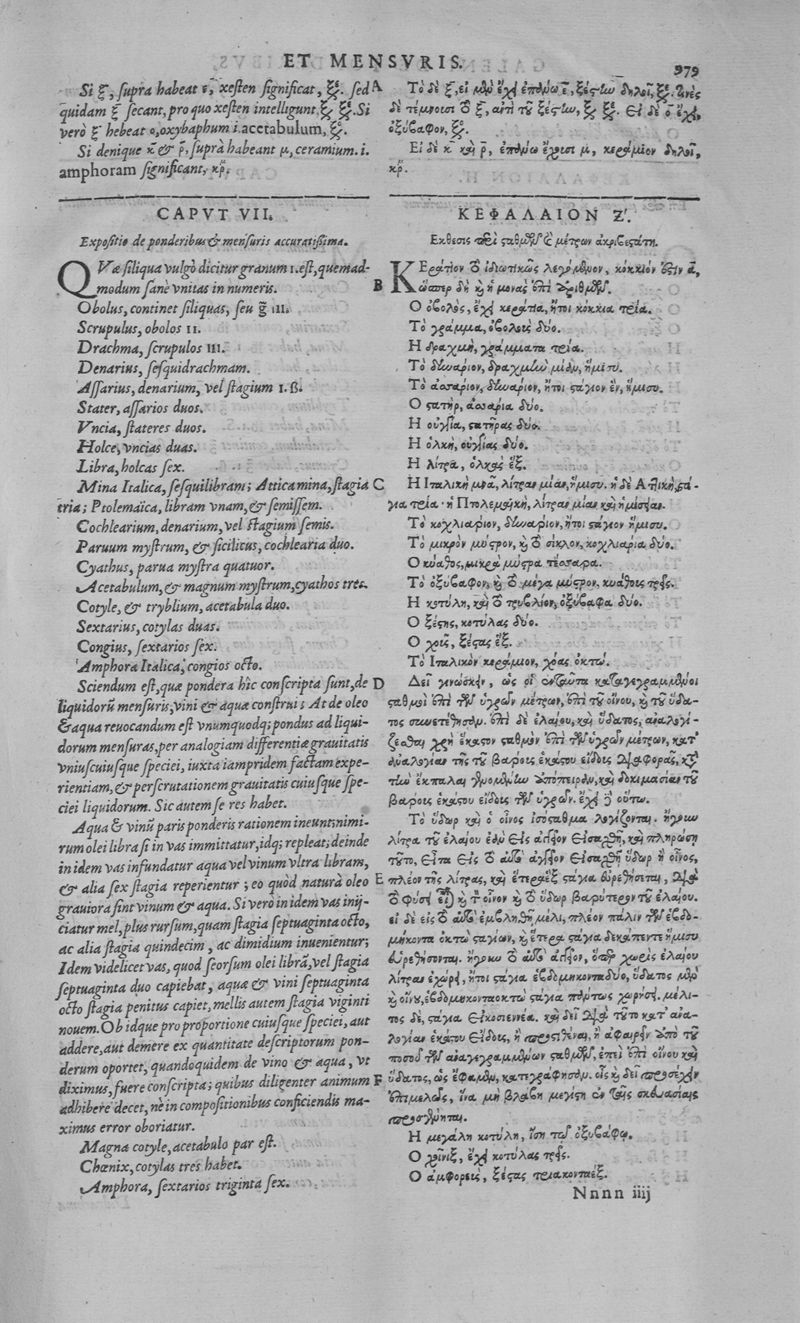 ET MENSVRIS.
979
Si ξ, supra habeat ε, xesten significat, ξε. sed
quidam ξ secant, pro quo xesten intelligunt ξ ξε. Si
verò ξ hebeat ο, oxybaphum i. acetabulum, ξο.
Si denique κ & ρ, supra habeant μ, ceramium. i.
amphoram significant, κρ.
CAPVT VII.
Expositio de ponderibus & mensuris accuratissima.
QVæ siliqua vulgò dicitur granum 1. est, quemad-
modum sanè vnitas in numeris.
Obolus, continet siliquas, seu g̃ III.
Scrupulus, obolos II.
Drachma, scrupulos III.
Denarius, sesquidrachmam.
Assarius, denarium, vel stagium 1. ß.
Stater, assarios duos.
Vncia, stateres duos.
Holce, vncias duas.
Libra, holcas sex.
Mina Italica, sesquilibram; Attica mina, stagia
tria; Ptolemaïca, libram vnam, & semissem.
Cochlearium, denarium, vel stagium semis.
Paruum mystrum, & sicilicus, cochlearia duo.
Cyathus, parua mystra quatuor.
Acetabulum, & magnum mystrum, cyathos tres.
Cotyle, & tryblium, acetabula duo.
Sextarius, cotylas duas.
Congius, sextarios sex.
Amphora Italica, congios octo.
Sciendum est, quæ pondera hîc conscripta sunt, de
liquidorũ mensuris, vini & aquæ constitui; At de oleo
& aqua reuocandum est vnumquodq; pondus ad liqui-
dorum mensuras, per analogiam differentiæ grauitatis
vniuscuiusque speciei, iuxta iampridem factam expe-
rientiam, & perscrutationem grauitatis cuiusque spe-
ciei liquidorum. Sic autem se res habet.
Aqua & vinũ paris ponderis rationem ineunt; nimi-
rum olei libra si in vas immittatur, idq; repleat; deinde
in idem vas infundatur aqua vel vinum vltra libram,
& alia sex stagia reperientur; eo quòd naturâ oleo
grauiora sint vinum & aqua. Si verò in idem vas inij-
ciatur mel, plus rursum, quam stagia septuaginta octo,
ac alia stagia quindecim, ac dimidium inuenientur;
Idem videlicet vas, quod seorsum olei librã, vel stagia
septuaginta duo capiebat, aquæ & vini septuaginta
octo stagia penitus capiet, mellis autem stagia viginti
nouem. Ob idque pro proportione cuiusque speciei, aut
addere, aut demere ex quantitate descriptorum pon-
derum oportet, quandoquidem de vino & aqua, vt
diximus, fuere conscripta; quibus diligenter animum
adhibere decet, ne in compositionibus conficiendis ma-
ximus error oboriatur.
Magna cotyle, acetabulo par est.
Chœnix, cotylas tres habet.
Amphora, sextarios triginta sex.
A
B
C
D
E
F
Τὸ δὲ ξ, εἰ μὲν ἔχῃ ἐπάνω ε, ξέστην δηλοῖ, ξε. τινὲς
δὲ τέμνουσι τὸ ξ, ἀντὶ τοῦ ξέστην, ξ ξε. Εἰ δὲ ο ἔχῃ,
ὀξύβαφον, ξο.
Εἰ δὲ κ καὶ ρ, ἐπάνω ἔχουσι μ, κεράμιον δηλοῖ,
κρ.
ΚΕΦΑΛΑΙΟΝ Ζʹ.
Εκθεσις περὶ σταθμῶν καὶ μέτρων ἀκριβεστάτη.
ΚΕράτιον τὸ ἰδιωτικῶς λεγόμενον, κόκκιόν ἐστιν α,
ὥσπερ δὴ καὶ ἡ μονὰς ἐπὶ ἀριθμῶν.
Ο ὀβολὸς, ἔχῃ κεράτια, ἤτοι κόκκια τρία.
Τὸ γράμμα, ὀβολοὺς δύο.
Η δραχμὴ, γράμματα τρία.
Τὸ δηνάριον, δραχμὴν μίαν, ἥμισυ.
Τὸ ἀσσάριον, δηνάριον, ἤτοι στάγιον ἓν, ἥμισυ.
Ο στατὴρ, ἀσσάρια δύο.
Η οὐγγία, στατῆρας δύο.
Η ὁλκὴ, οὐγγίας δύο.
Η λίτρα, ὁλκὰς ἕξ.
Η Ιταλικὴ μνᾶ, λίτραν μίαν, ἥμισυ. ἡ δὲ Αττικὴ, στά-
για τρία· ἡ Πτολεμαϊκὴ, λίτραν μίαν καὶ ἡμίσειαν.
Τὸ κοχλιάριον, δηνάριον, ἤτοι στάγιον ἥμισυ.
Τὸ μικρὸν μύστρον, καὶ τὸ σίκλον, κοχλιάρια δύο.
Ο κύαθος, μικρὰ μύστρα τέσσαρα.
Τὸ ὀξύβαφον, καὶ τὸ μέγα μύστρον, κυάθους τρεῖς.
Η κοτύλη, καὶ τὸ τρυβλίον, ὀξύβαφα δύο.
Ο ξέστης, κοτύλας δύο.
Ο χοῦς, ξέστας ἕξ.
Τὸ Ιταλικὸν κεράμιον, χόας ὀκτώ.
Δεῖ γινώσκειν, ὡς οἱ ἐνταῦθα καταγεγραμμένοι
σταθμοὶ ἐπὶ τῶν ὑγρῶν μέτρων, ἐπὶ τοῦ οἴνου, καὶ τοῦ ὕδα-
τος συνετέθησαν. ἐπὶ δὲ ἐλαίου, καὶ ὕδατος, ἀναλογί-
ζεσθαι χρὴ ἕκαστον σταθμὸν ἐπὶ τῶν ὑγρῶν μέτρων, κατ'
ἀναλογίαν τῆς τοῦ βάρους ἑκάστου εἴδους διαφορᾶς, κατὰ
τὴν ἔκπαλαι γενομένην ἀπόπειραν, καὶ δοκιμασίαν τοῦ
βάρους ἑκάστου εἴδους τῶν ὑγρῶν. ἔχῃ δὲ οὕτω.
Τὸ ὕδωρ καὶ ὁ οἶνος ἰσόσταθμα λογίζονται. ἤγουν
λίτρα τοῦ ἐλαίου ἐὰν εἰς ἀγγεῖον εἰσαχθῇ, καὶ πληρώσῃ
τοῦτο, εἶτα εἰς τὸ αὐτὸ ἀγγεῖον εἰσαχθῇ ὕδωρ ἢ οἶνος,
πλέον τῆς λίτρας, καὶ ἕτερα ἓξ στάγια εὑρεθήσεται, διὰ
τὸ φύσει εἶναι καὶ τὸν οἶνον καὶ τὸ ὕδωρ βαρύτερον τοῦ ἐλαίου.
εἰ δὲ εἰς τὸ αὐτὸ ἐμβληθῇ μέλι, πλέον πάλιν τῶν ἑβδο-
μήκοντα ὀκτὼ σταγίων, καὶ ἕτερα στάγια δεκάπεντε ἥμισυ
εὑρεθήσονται. ἤγουν τὸ αὐτὸ ἀγγεῖον, ὅπερ χωρὶς ἐλαίου
λίτραν ἐχώρῃ, ἤτοι στάγια ἑβδομηκονταδύο, ὕδατος μὲν
καὶ οἴνου, ἑβδομηκονταοκτὼ στάγια πάντως χωρήσῃ. μέλι-
τος δὲ, στάγια εἰκοσιεννέα. καὶ δεῖ διὰ τοῦτο κατ' ἀνα-
λογίαν ἑκάστου εἴδους, ἢ προστιθέναι, ἢ ἀφαιρεῖν ἀπὸ τοῦ
ποσοῦ τῶν ἀναγεγραμμένων σταθμῶν, ἐπεὶ ἐπὶ οἴνου καὶ
ὕδατος, ὡς ἔφαμεν, κατεγράφησαν. οἷς καὶ δεῖ προσέχειν
ἐπιμελῶς, ἵνα μὴ βλάβη μεγίστη ἐν ταῖς σκευασίαις
προσγένηται.
Η μεγάλη κοτύλη, ἴση τῷ ὀξυβάφῳ.
Ο χοῖνιξ, ἔχῃ κοτύλας τρεῖς.
Ο ἀμφορεὺς, ξέστας τριακονταέξ.
Nnnn iiij